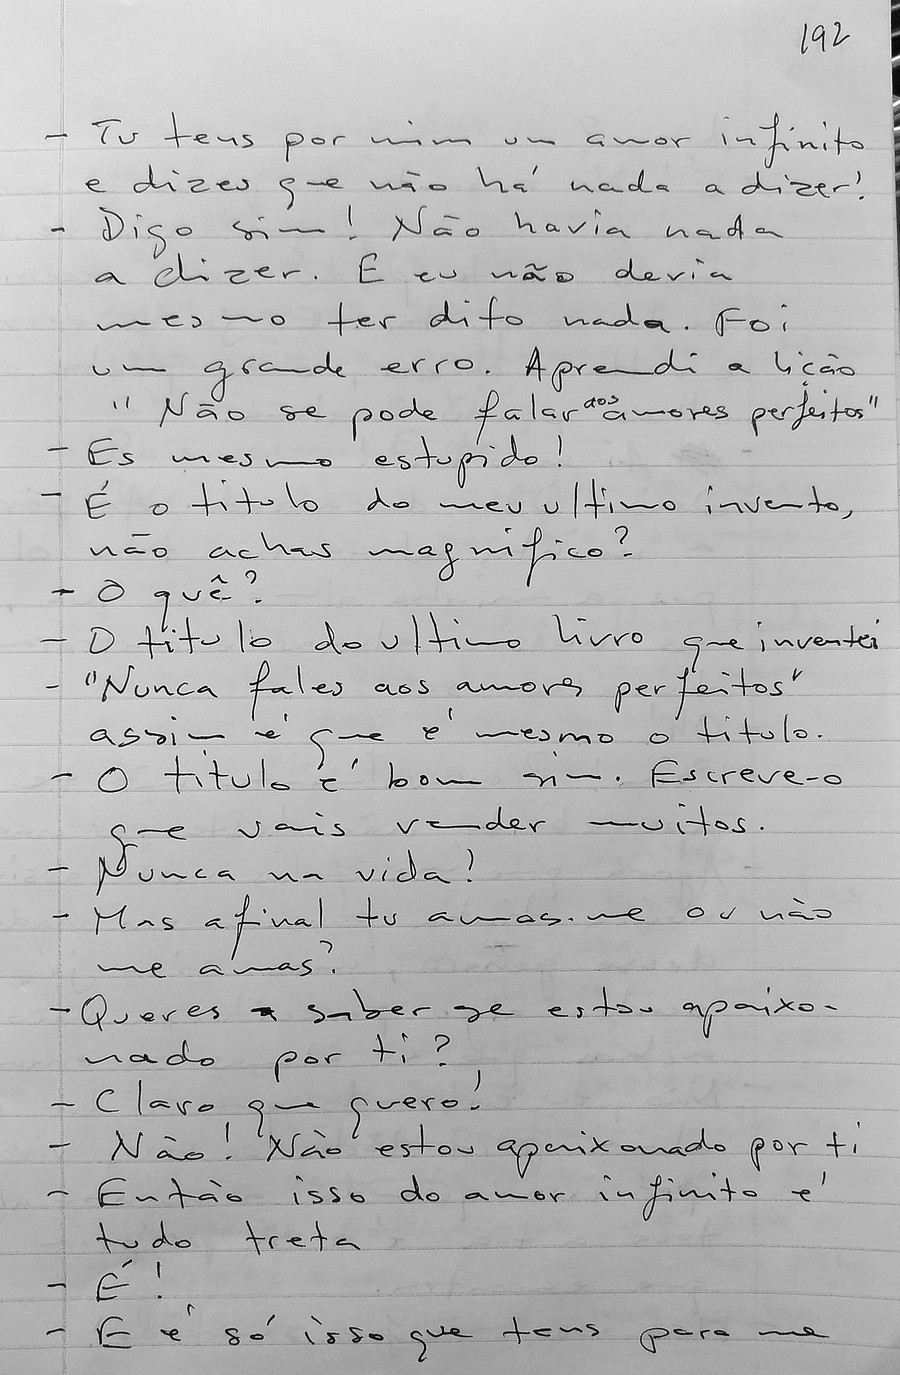 192
- Tu tens por mim um amor infinito
e dizes que não há nada a dizer!
- Digo sim! Não havia nada
a dizer. E eu não devia
mesmo ter dito nada. Foi
um grande erro. Aprendi a lição
"Não se pode falar aos amores perfeitos"
- Es mesmo estupido!
- É o titulo do meu ultimo invento,
não achas magnifico?
- O quê?
- O título do ultimo livro que inventei
- "Nunca fales aos amores perfeitos"
assim é que é mesmo o titulo.
- O titulo é bom sim. Escreve-o
que vais vender muitos.
- Nunca na vida!
- Mas afinal tu amas-me ou não
me amas?
- Queres saber se estou apaixo-
nado por ti?
- Claro que quero!
- Não! Não estou apaixonado por ti
- Então isso do amor infinito é
tudo treta
- É!
- E é só isso que tens para me